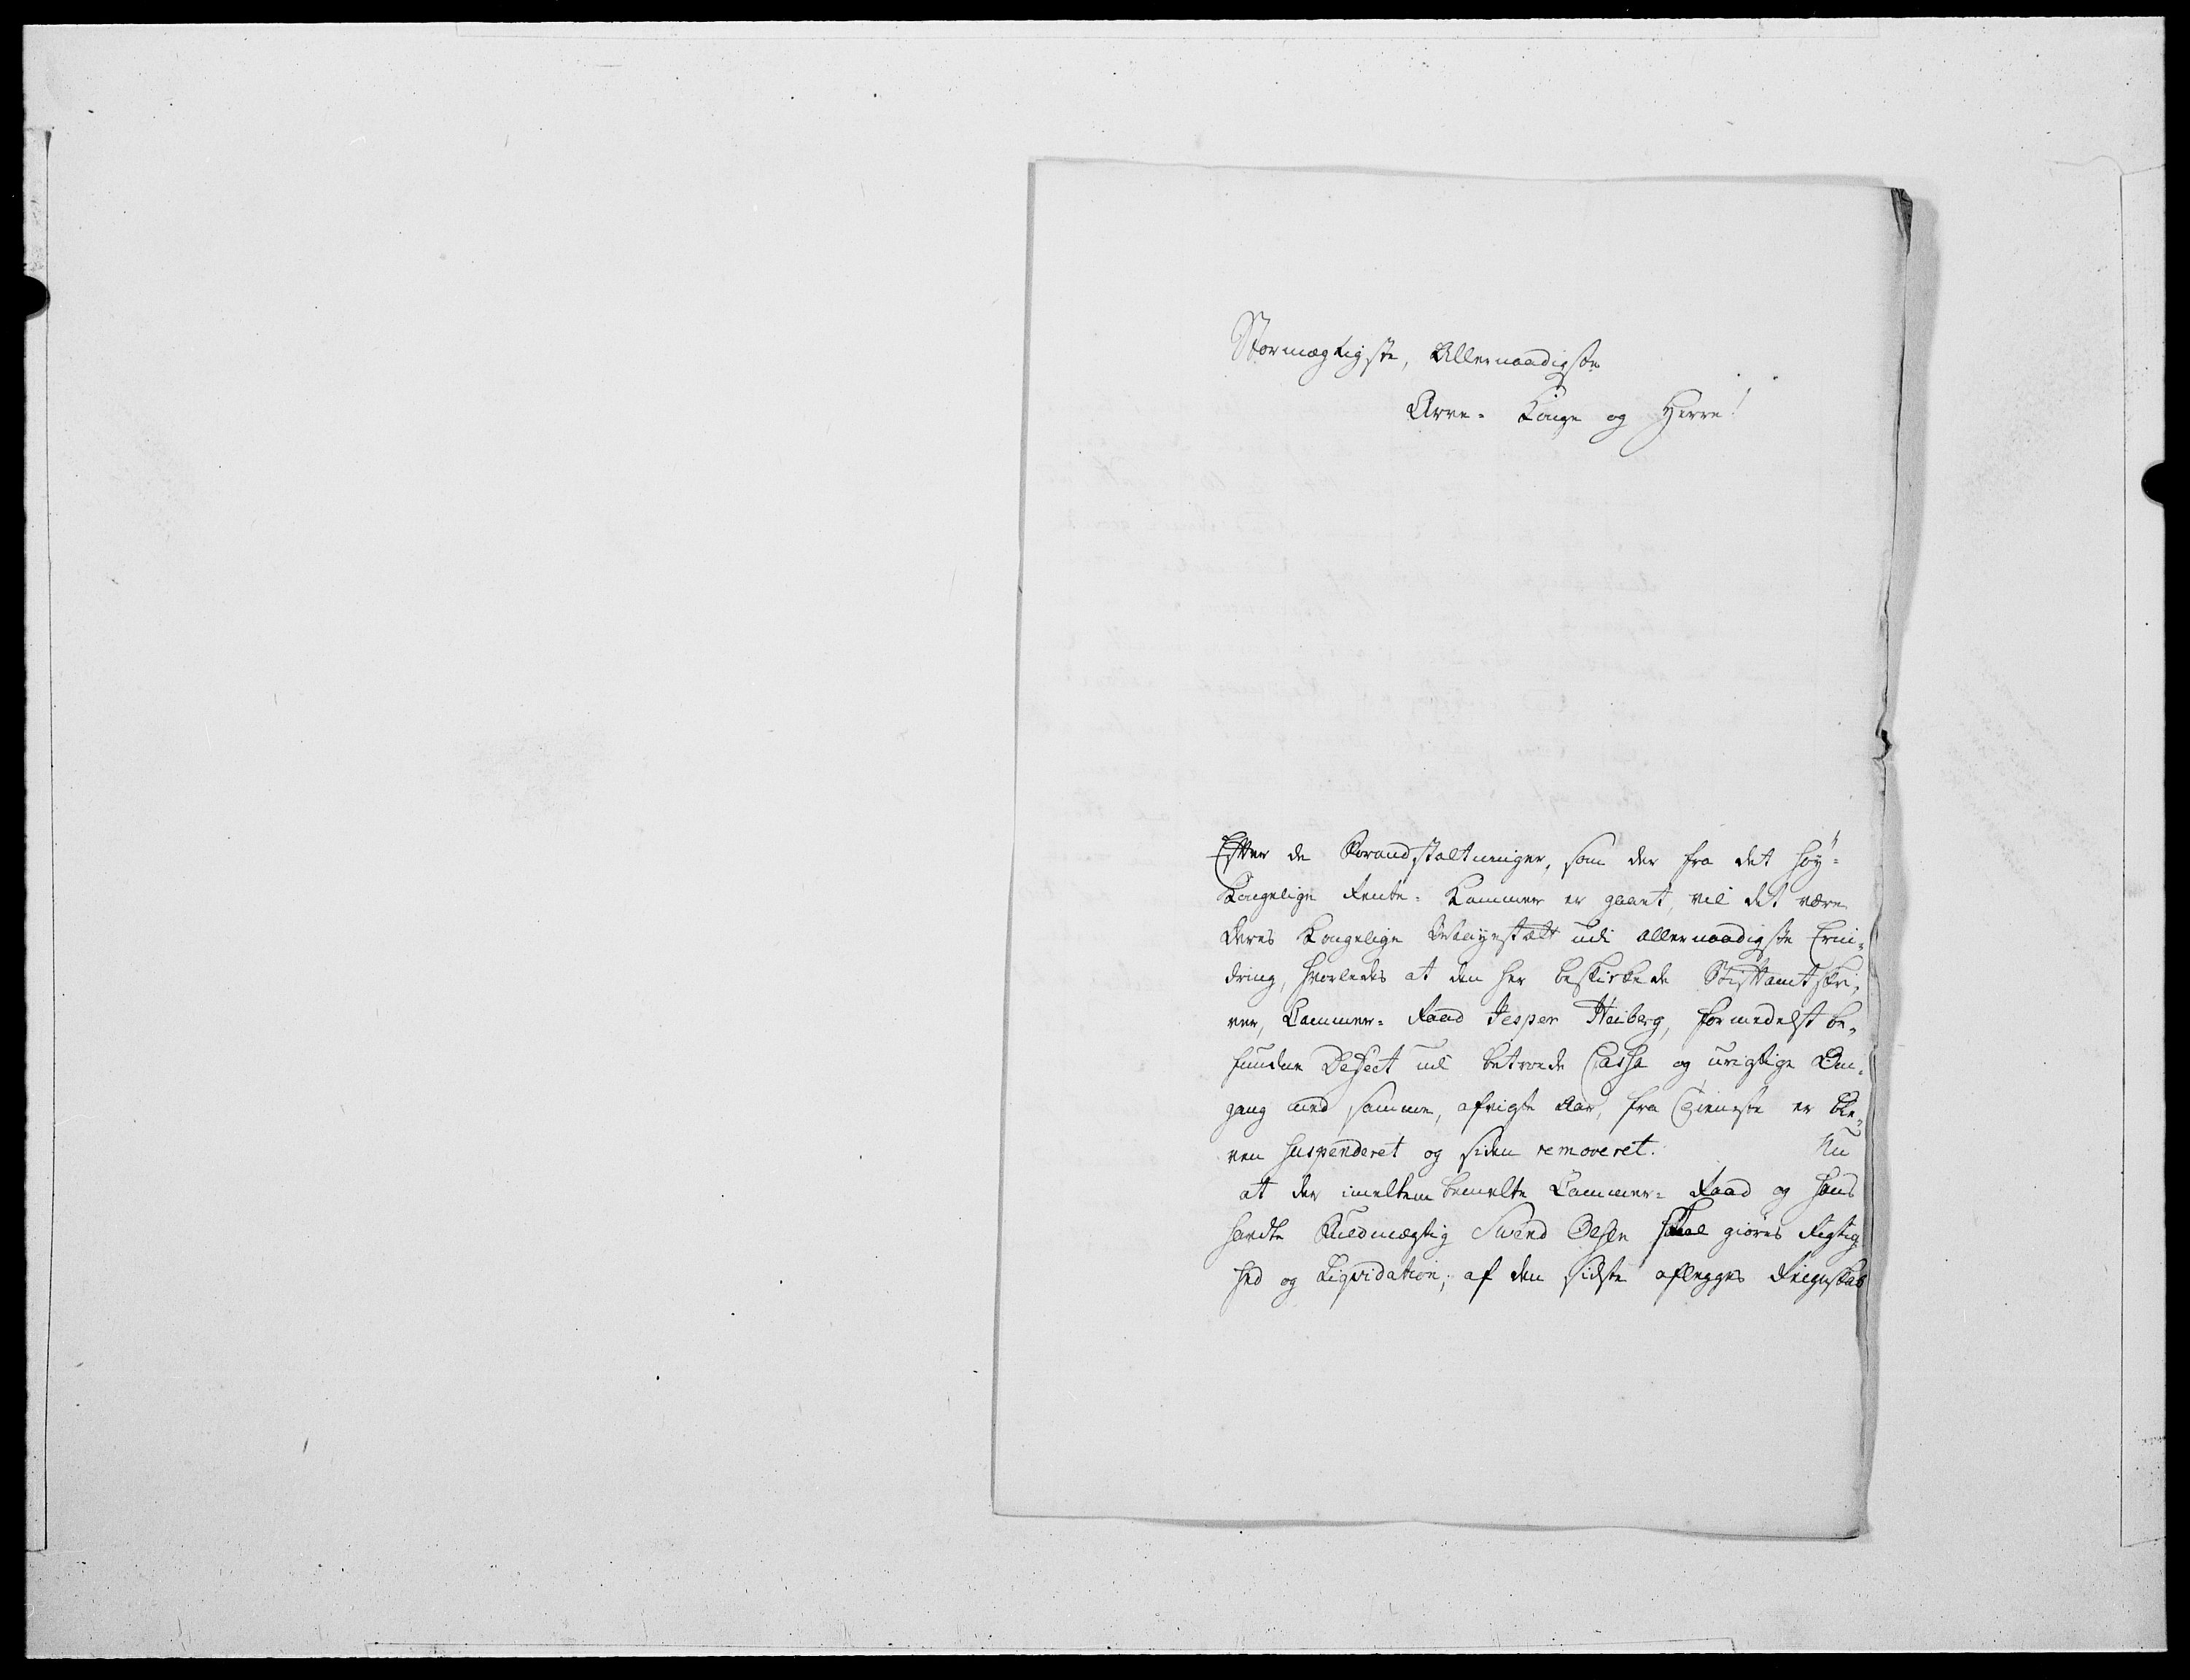 Stormægtigste, Allernaadigste
Arve- Konge og Herre!
Efter de Forandstaltninger, som der fra det høy-
Kongelige Rente- Kammer er gaaet, vil det være
Deres Kongelige Mayestæt udi allernaadigste Erin-
dring, hvorledes at den her beskikkede Stiftamtskri-
ver, Cammer- Raad Jesper Heiberg, formedelst be-
funden Defect ud betroede Cassa og urigtige Om-
gang med samme, afvigte Aar, fra Tieneste er ble-
ven suspenderet og siden removeret. Nu
at der imellem bemelte Cammer- Raad og hans
havdte Fuldmægtig Svend Olsen skal giøres Rigtig
hed og Liqvidation, af den sidste aflegges Reignskab